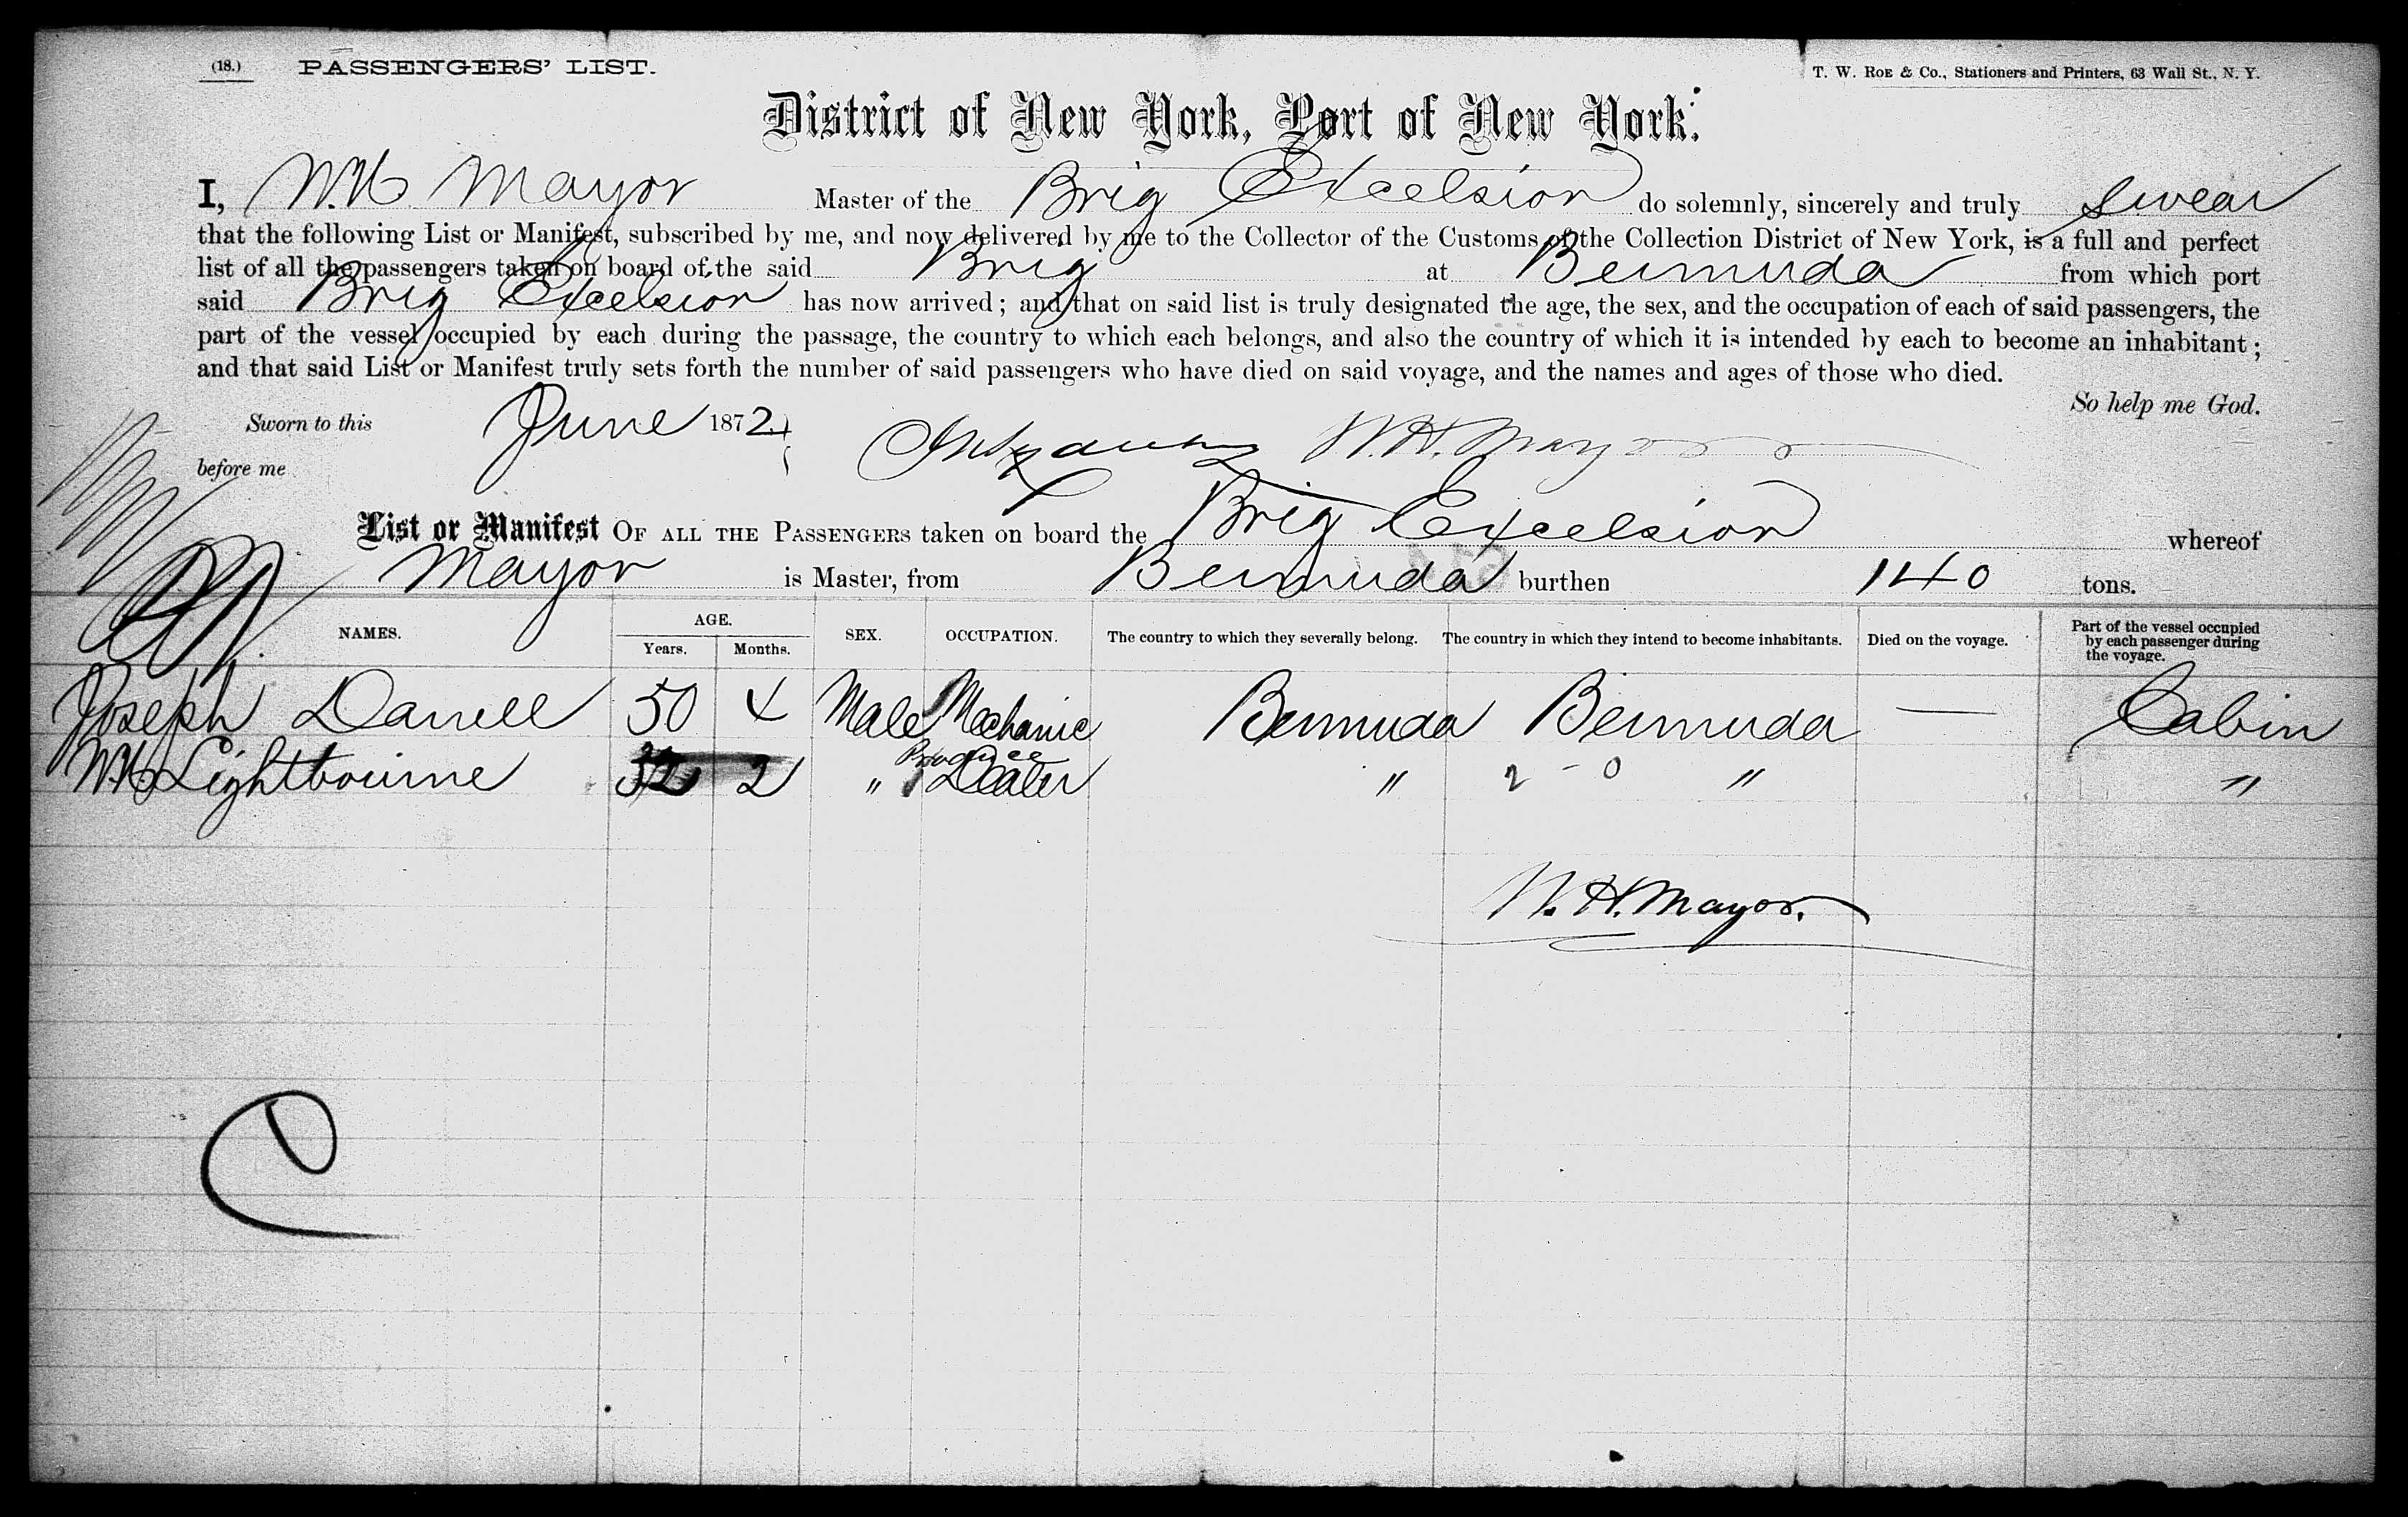 (18.) PASSENGERS' LIST.
T. W. Roe & Co., Stationers and Printers, 63 Wall St., N. Y.
District of New York, Port of New York.
I, W. H. Mayor Master of the Brig Excelsior do solemnly, sincerely and truly swear
that the following List or Manifest, subscribed by me, and now delivered by me to the Collector of the Customs of the Collection District of New York, is a full and perfect
list of all the passengers taken on board of the said Brig at Bermuda from which port
said Brig Excelsior has now arrived; and that on said list is truly designated the age, the sex, and the occupation of each of said passengers, the
part of the vessel occupied by each during the passage, the country to which each belongs, and also the country of which it is intended by each to become an inhabitant;
and that said List or Manifest truly sets forth the number of said passengers who have died on said voyage, and the names and ages of those who died.
So help me God.
Sworn to this June 1872 W. H. Mayor
before me
List or Manifest OF ALL THE PASSENGERS taken on board the Brig Excelsior whereof
Mayor is Master, from Bermuda burthen 140 tons.
NAMES. AGE. Years. Months. SEX. OCCUPATION. The country to which they severally belong. The country in which they intend to become inhabitants. Died on the voyage. Part of the vessel occupied by each passenger during the voyage.
Joseph Darrell 50 4 Male Mechanic Bermuda Bermuda — Cabin
W. H. Lightbourne 32 2 " Produce Dealer " 2 - 0 " "
W. H. Mayor.
C